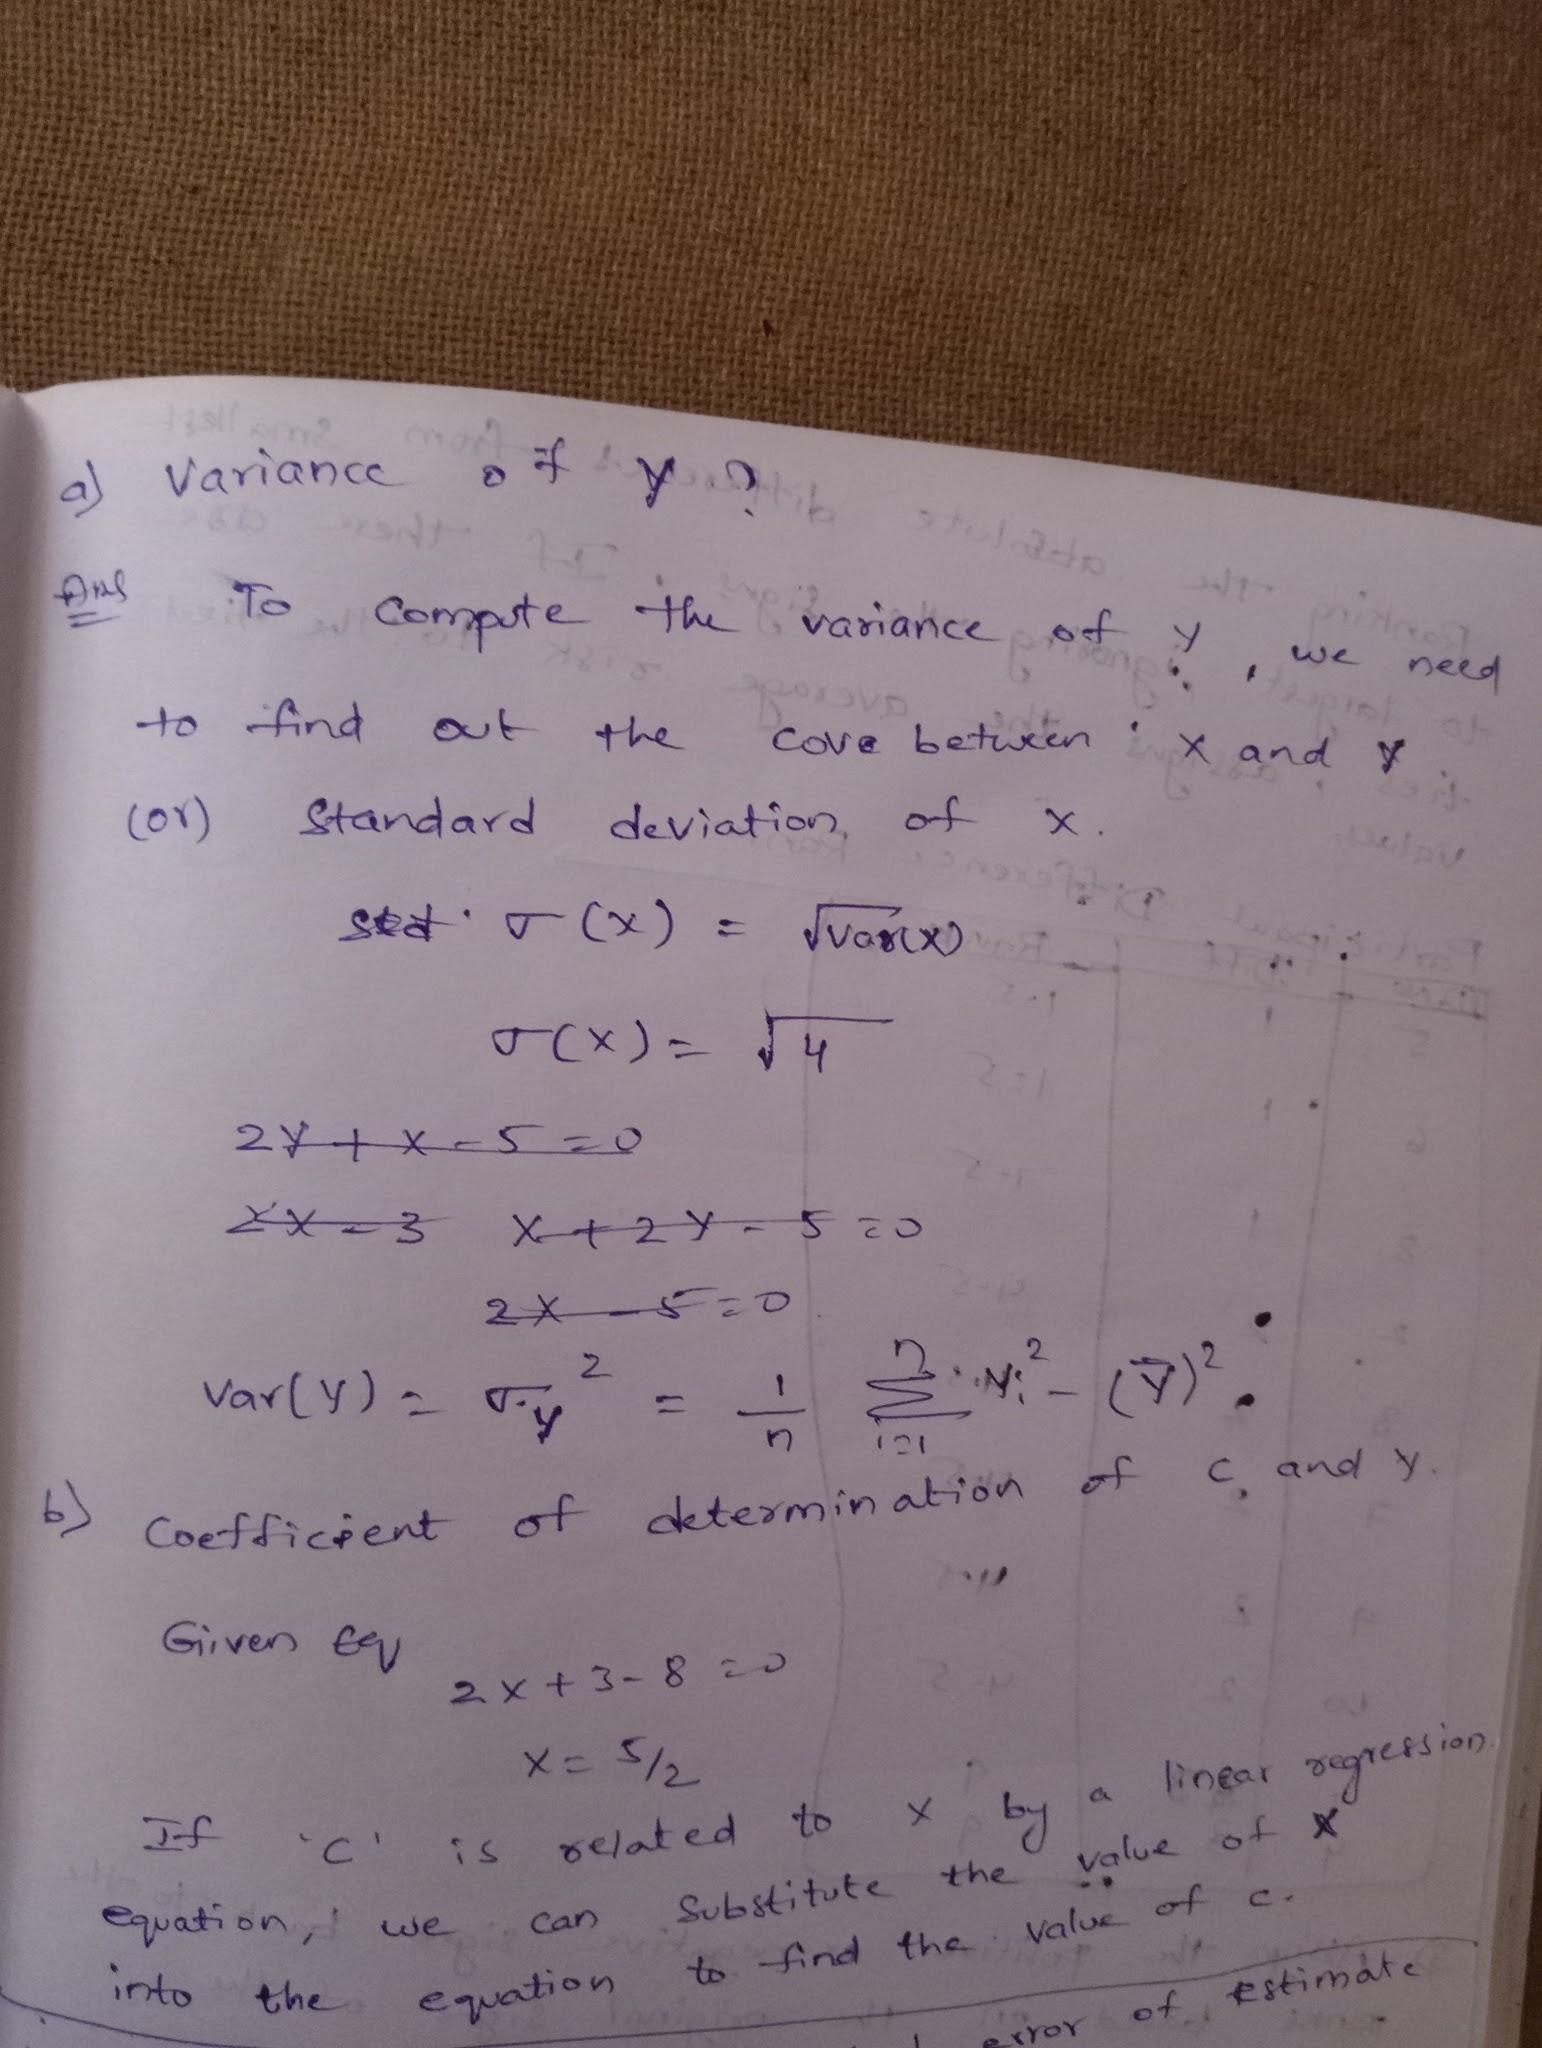 a) Variance of y?
Ans To compute the variance of y, we need
to find out the cove between x and y
(or) Standard deviation of x.
std σ(x) = √var(x)
σ(x) = √4
2y + x - 5 = 0
2x - 3 x + 2y - 5 = 0
2x - 5 = 0
Var(y) = σy² = 1/n Σ i=1 n yi² - (ȳ)²
b) Coefficient of determination of c, and y.
Given Eq
2x + 3 - 8 = 0
x = 5/2
If 'c' is related to x by a linear regression
equation, we can substitute the value of x
into the equation to find the value of c.
error of estimate